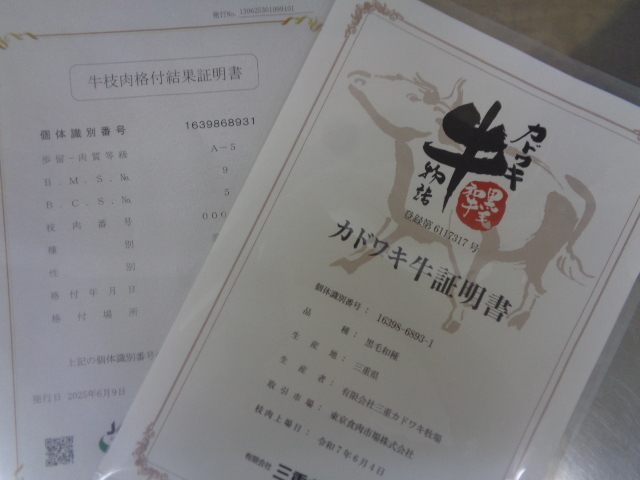 発行No. 13062530109
牛枝肉格付結果証明書
個体識別番号 1639868931
歩留・肉質等級 A-5
B.M.S.№ 9
B.C.S.№ 5
枝肉番号 000
種別
性別
格付年月日
格付場所
上記の個体識別番号
発行日 2025年6月9日
カドワキ
牛
物語
黒毛和牛
登録第6117317号
カドワキ牛証明書
個体識別番号：16398-6893-1
品種：黒毛和種
生産地：三重県
生産者：有限会社三重カドワキ牧場
取引市場：東京食肉市場株式会社
枝肉上場日：令和7年6月4日
有限会社 三重